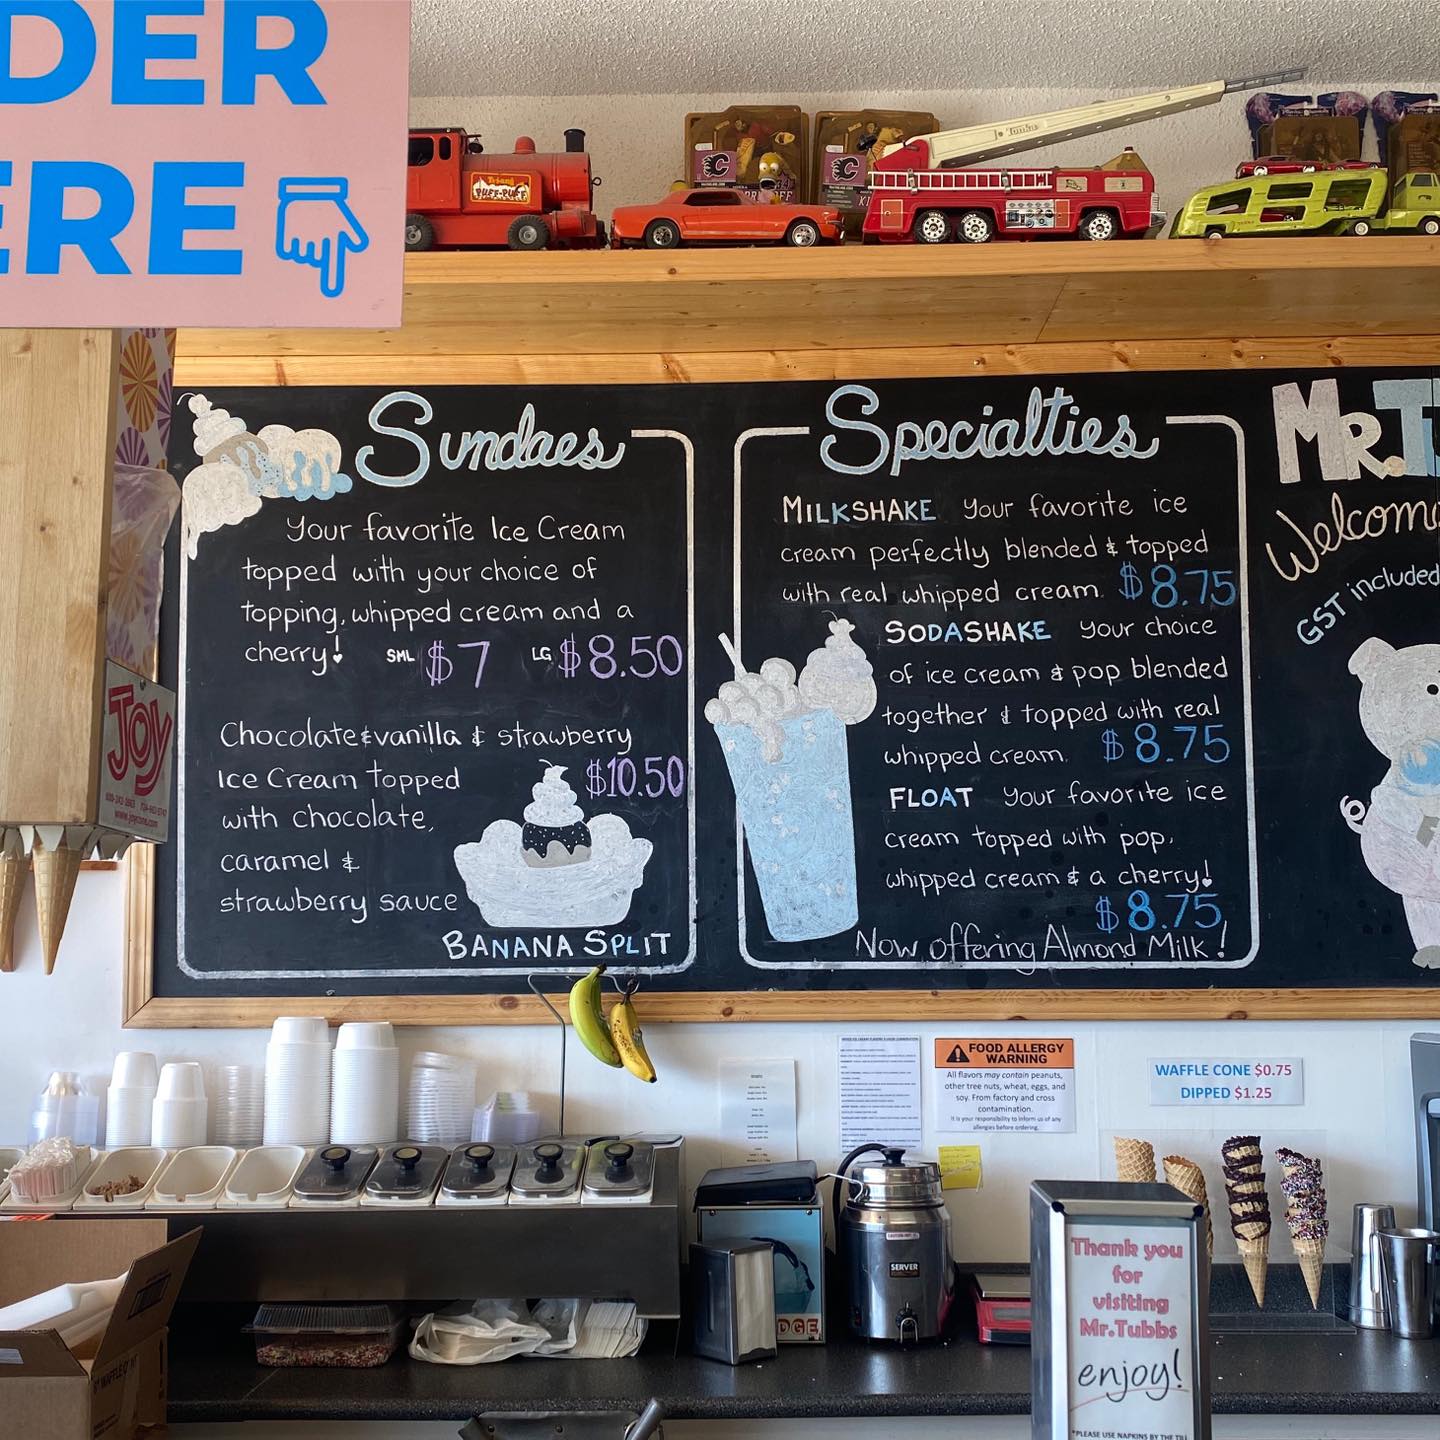 DER
ERE
Tri-ang
PUFF-PUFF
Tonka
Sundaes
Your favorite Ice Cream
topped with your choice of
topping, whipped cream and a
cherry! SML $7 LG $8.50
Chocolate & vanilla & strawberry
Ice Cream topped $10.50
with chocolate,
caramel &
strawberry sauce
BANANA SPLIT
Specialties
MILKSHAKE Your favorite ice
cream perfectly blended & topped
with real whipped cream. $8.75
SODASHAKE Your choice
of ice cream & pop blended
together & topped with real
whipped cream. $8.75
FLOAT Your favorite ice
cream topped with pop,
whipped cream & a cherry!
$8.75
Now offering Almond Milk!
MR.T
Welcome
GST included
JOY
www.joycone.com
FOOD ALLERGY
WARNING
All flavors may contain peanuts,
other tree nuts, wheat, eggs, and
soy. From factory and cross
contamination.
It is your responsibility to inform us of any
allergies before ordering.
WAFFLE CONE $0.75
DIPPED $1.25
SERVER
DGE
Thank you
for
visiting
Mr.Tubbs
enjoy!
*PLEASE USE NAPKINS BY THE TILL